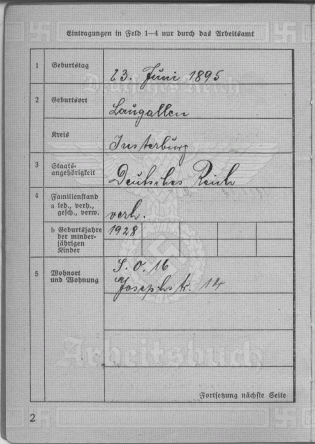 Eintragungen in Feld 1—4 nur durch das Arbeitsamt
1 Geburtstag 23. Juni 1895
Deutsches Reich
2 Geburtsort Laugallen
Kreis Insterburg
3 Staats-
angehörigkeit Deutsches Reich
4 Familienstand
a led., verh.,
gesch., verw. verh.
b Geburtsjahre 1928
der minder-
jährigen
Kinder
5 Wohnort S. O. 16
und Wohnung Josephstr. 14
Arbeitsbuch
Fortsetzung nächste Seite
2